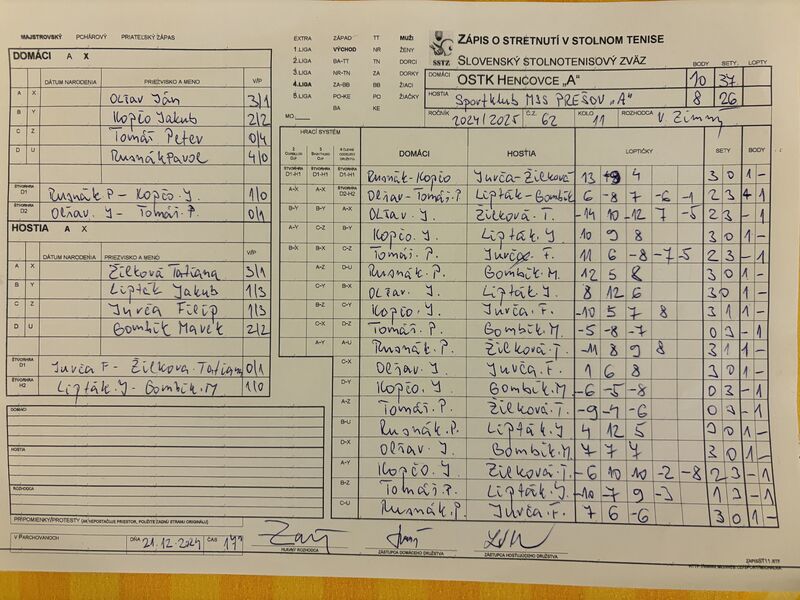 MAJSTROVSKÝ PCHÁROVÝ PRIATEĽSKÝ ZÁPAS
DOMÁCI A X
DÁTUM NARODENIA PRIEZVISKO A MENO V/P
A X Oľšav Ján 3/1
B Y Kopčo Jakub 2/2
C Z Tomáš Peter 0/4
D U Rusnák Pavol 4/0
ŠTVORHRA D1 Rusnák P - Kopčo. J 1/0
ŠTVORHRA D2 Oľšav. J - Tomáš. P. 0/1
HOSTIA A X
DÁTUM NARODENIA PRIEZVISKO A MENO V/P
A X Žilková Tatiana 3/1
B Y Lipták Jakub 1/3
C Z Jurča Filip 1/3
D U Bombík Marek 2/2
ŠTVORHRA D1 Jurča F - Žilková. Tatiana 0/1
ŠTVORHRA H2 Lipták. J - Bombík. M 1/0
DOMÁCI
HOSTIA
ROZHODCA
PRIPOMIENKY/PROTESTY
V PARCHOVANOCH DŇA 21.12.2024 ČAS
HLAVNÝ ROZHODCA
ZÁSTUPCA DOMÁCEHO DRUŽSTVA
ZÁSTUPCA HOSŤUJÚCEHO DRUŽSTVA
EXTRA ZÁPAD TT MUŽI
1.LIGA VÝCHOD NR ŽENY
2.LIGA BA-TT TN DORCI
3.LIGA NR-TN ZA DORKY
4.LIGA ZA-BB BB ŽIACI
5.LIGA PO-KE PO ŽIAČKY
BA KE
MO
SSTZ
ZÁPIS O STRETNUTÍ V STOLNOM TENISE
SLOVENSKÝ STOLNOTENISOVÝ ZVÄZ
BODY SETY LOPTY
DOMÁCI OSTK HENCOVCE „A" 10 37
HOSTIA Sportklub MSS PREŠOV „A" 8 26
ROČNÍK 2024/2025 Č.Z. 62 KOLO 11 ROZHODCA V. Zimny
HRACÍ SYSTÉM DOMÁCI HOSTIA LOPTIČKY SETY BODY
D1-H1 D1-H1 D1-H1 Rusnák-Kopčo Jurča-Žilková 13 9 4 3 0 1 -
A-X A-X D2-H2 Oľšav-Tomáš.P Lipták-Bombík 6 -8 7 -6 -1 2 3 - 1
B-Y B-Y A-X Oľšav. J. Žilková. T. -14 10 -12 7 -5 2 3 - 1
A-Y C-Z B-Y Kopčo. J Lipták. J 10 9 8 3 0 1 -
B-X B-X C-Z Tomáš. P. Jurča. F. 11 6 -8 -7 -5 2 3 - 1
A-Z D-U Rusnák. P. Bombík. M. 12 5 8 3 0 1 -
C-Y B-X Oľšav. J. Lipták. J. 8 12 6 3 0 1 -
B-Z C-Y Kopčo. J Jurča. F. -10 5 7 8 3 1 1 -
C-X D-Z Tomáš. P. Bombík. M. -5 -8 -7 0 3 - 1
A-Y A-U Rusnák. P. Žilková. T -11 8 9 8 3 1 1 -
C-X Oľšav. J Jurča. F. 1 6 8 3 0 1 -
D-Y Kopčo. J Bombík. M. -6 -5 -8 0 3 - 1
A-Z Tomáš. P. Žilková. T. -9 -4 -6 0 3 - 1
B-U Rusnák. P. Lipták. J 4 12 5 3 0 1 -
D-X Oľšav. J Bombík. M 7 7 4 3 0 1 -
A-Y Kopčo. J Žilková. T. -6 10 10 -2 -8 2 3 - 1
B-Z Tomáš. P. Lipták. J. -10 -7 9 -3 1 3 - 1
C-U Rusnák. P. Jurča. F. 7 6 -6 3 0 1 -